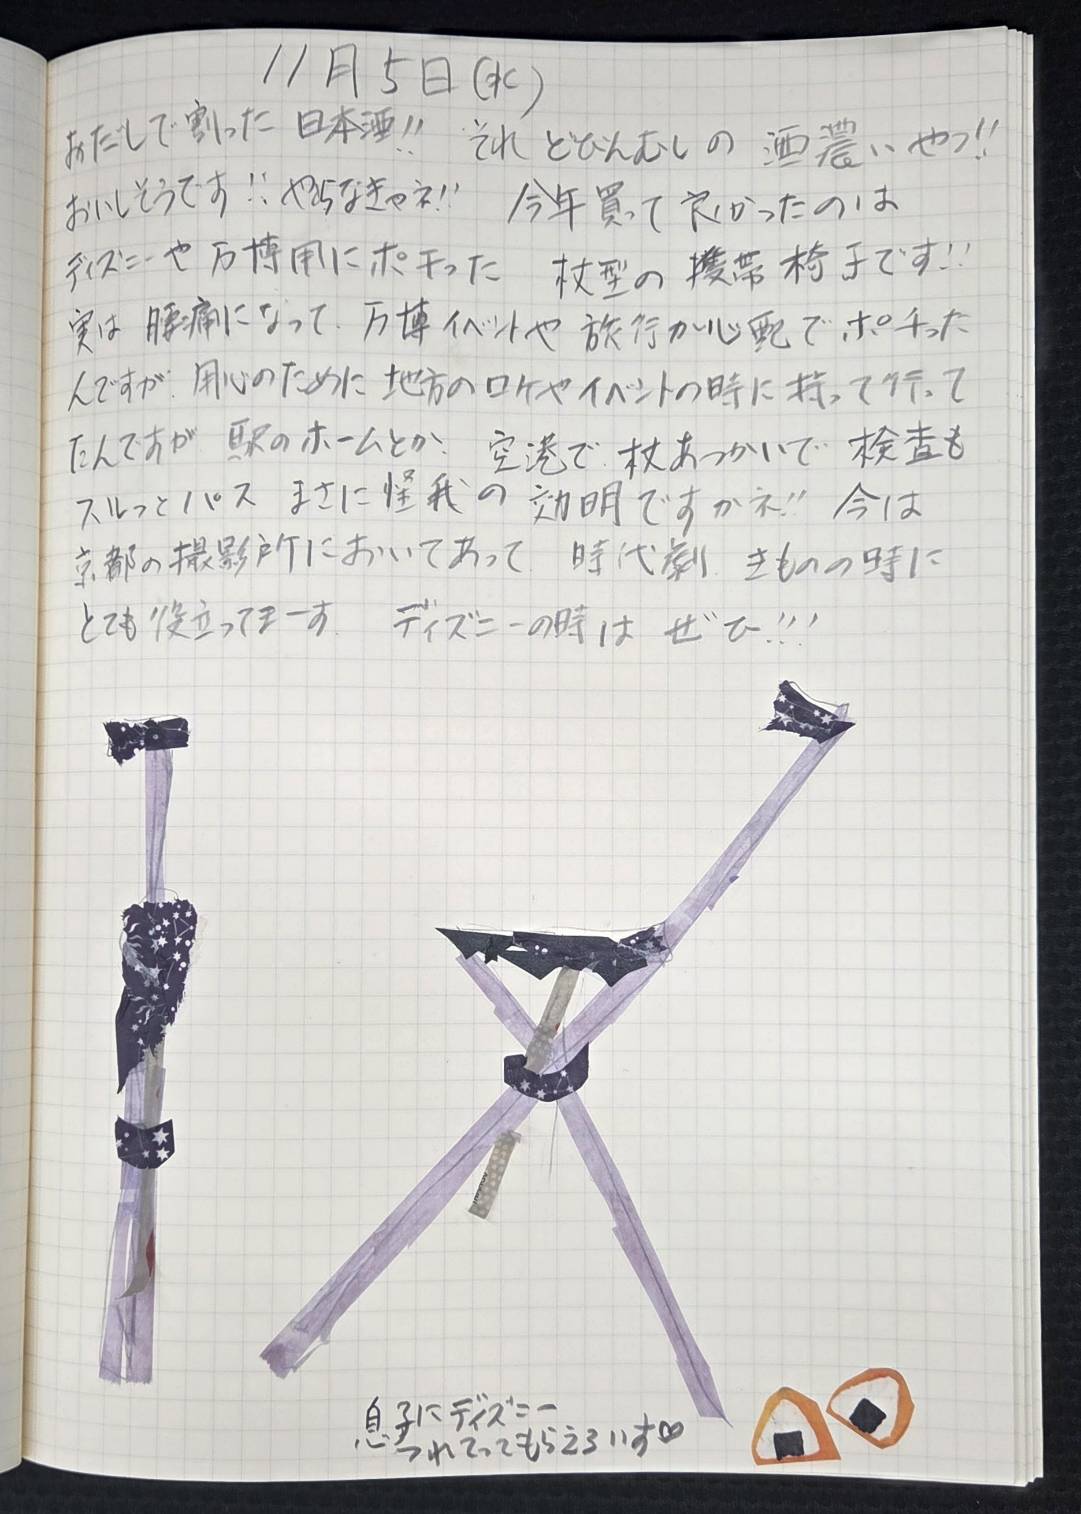 11月5日(水)
おだしで割った 日本酒!! それ どびんむしの 酒濃いやつ!!
おいしそうです!! やらなきゃネ!! 今年買って良かったのは
ディズニーや 万博用に ポチった 杖型の 携帯椅子です!!
実は 腰痛になって 万博イベントや 旅行が心配で ポチった
んですが 用心のために 地方のロケやイベントの時に持って行って
たんですが 駅のホームとか、空港で 杖あつかいで 検査も
スルっとパス まさに怪我の 効明ですかネ!! 今は
京都の撮影所においてあって 時代劇 きものの時に
とても役立ってまーす ディズニーの時は ぜひ!!!
息子にディズニー
つれてってもらえる